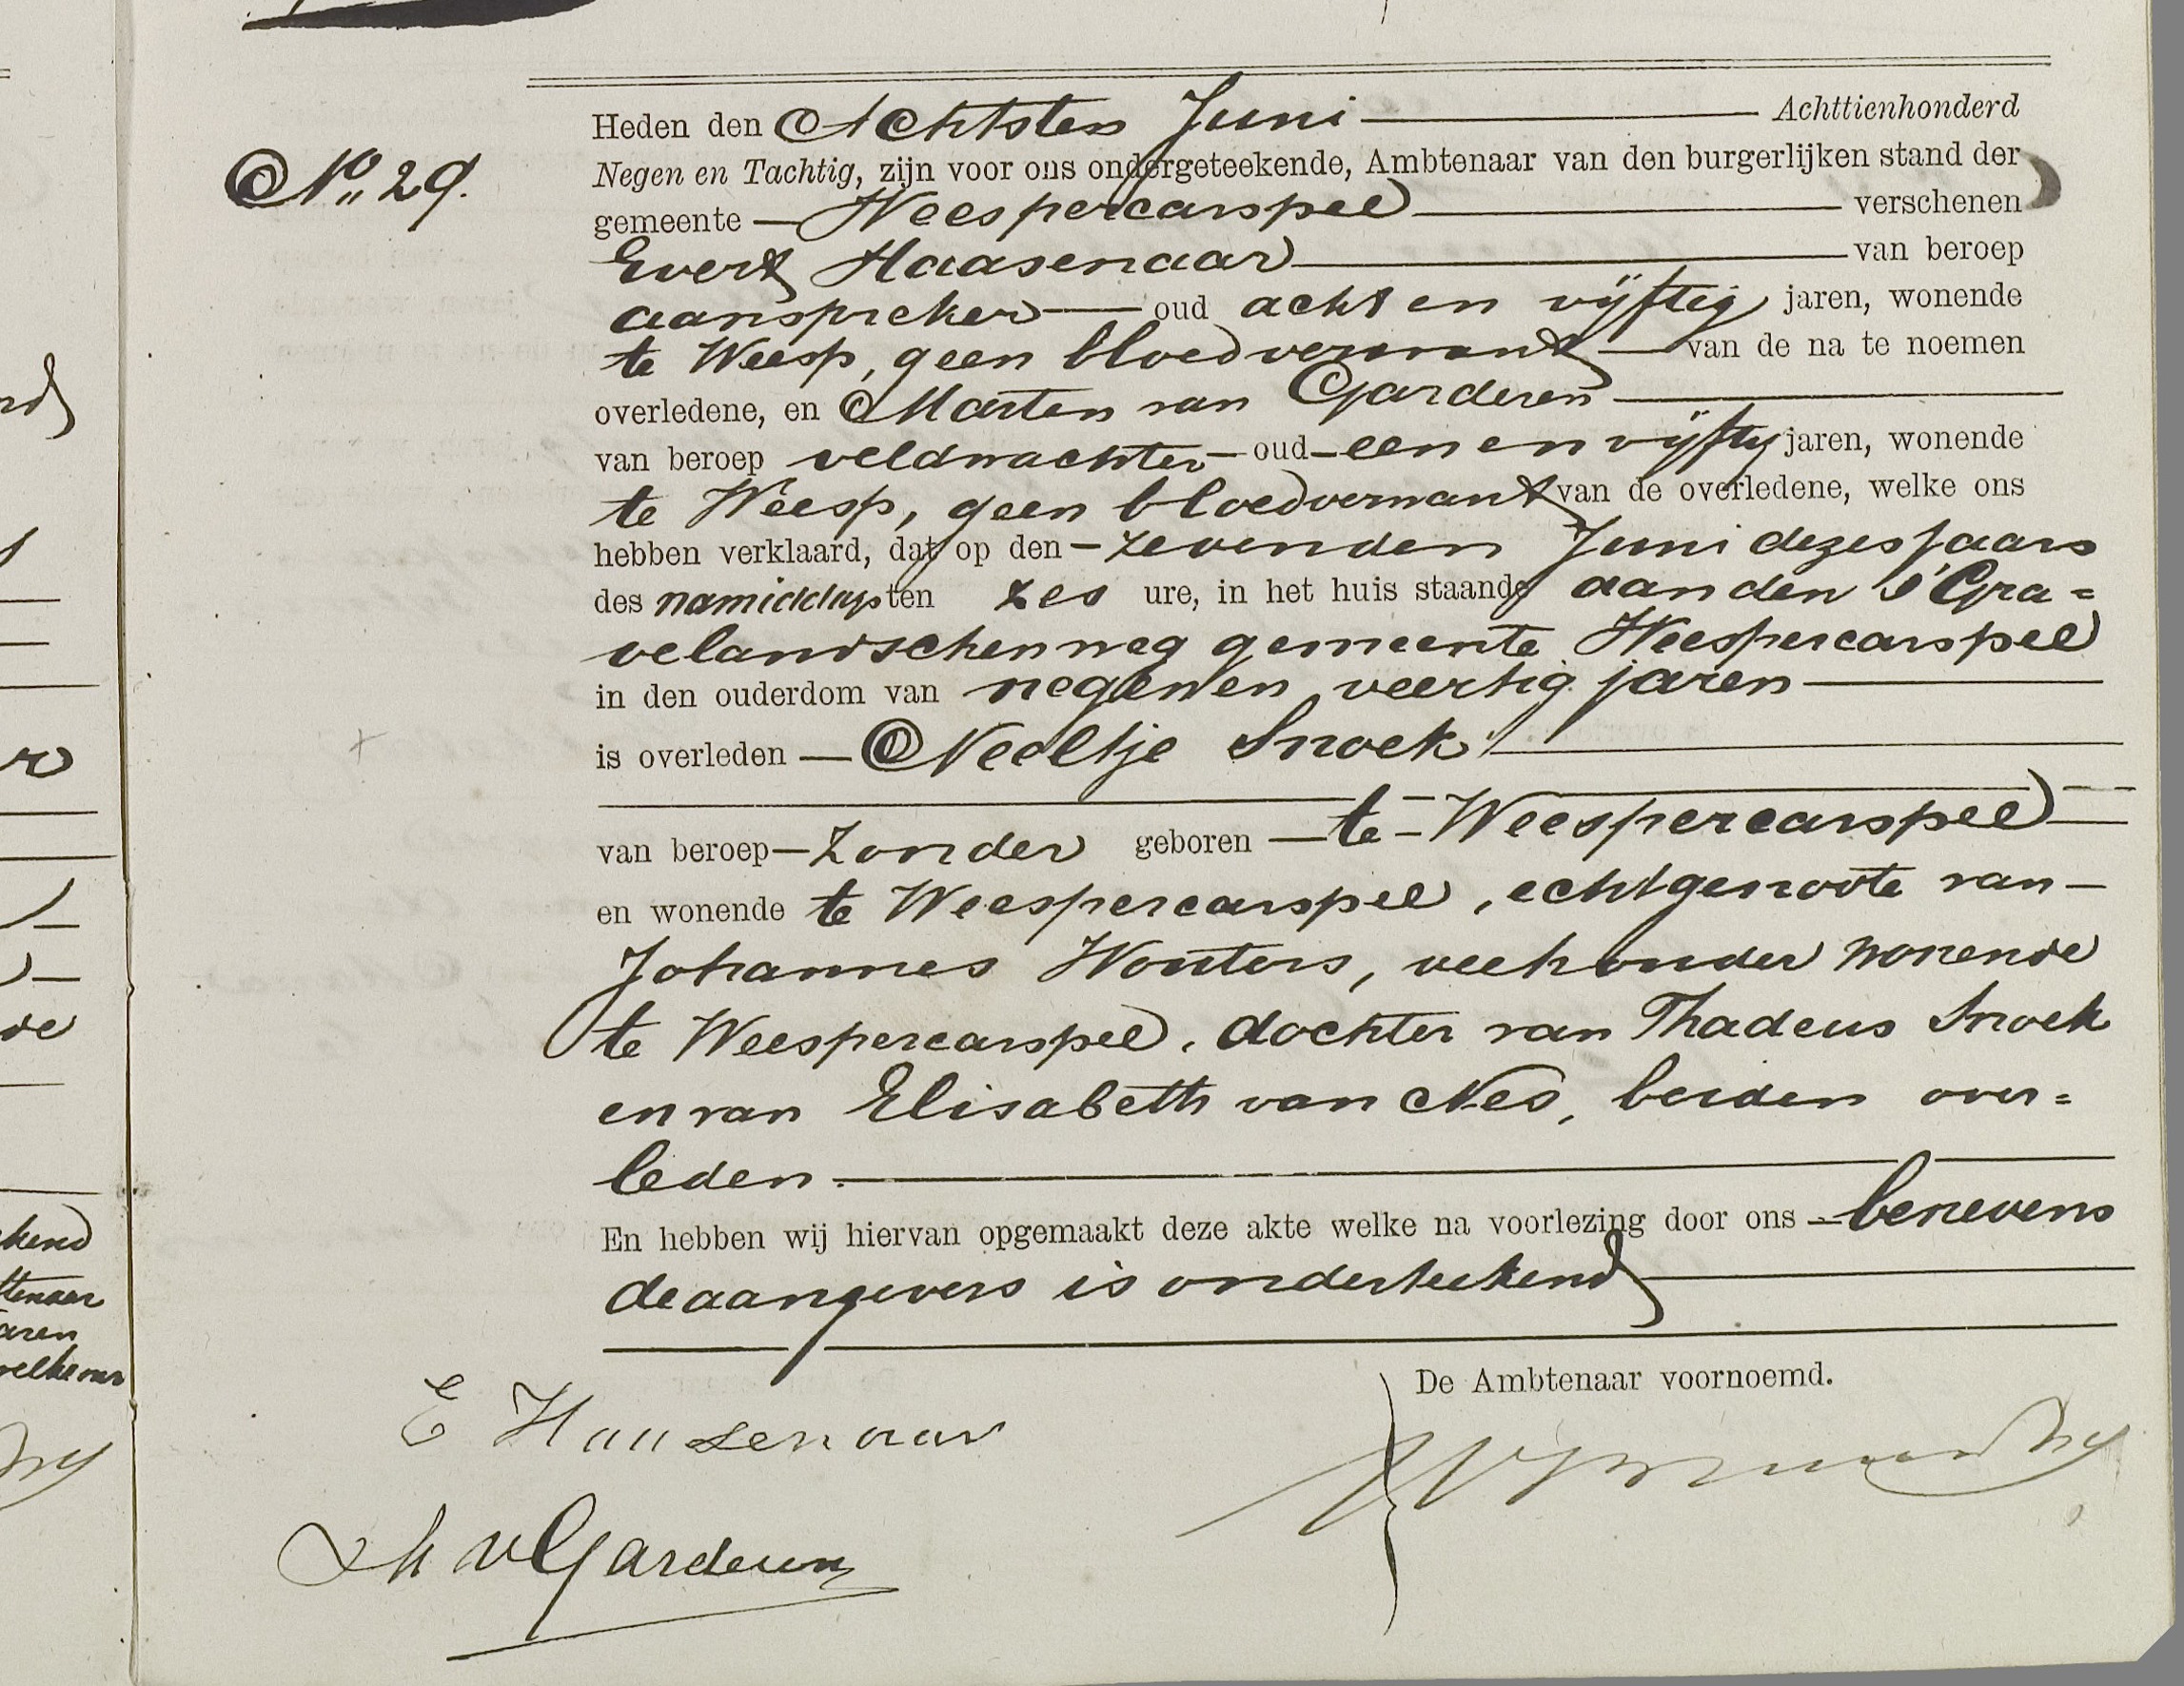 Heden den Achtsten Juni Achttienhonderd
No. 29.
Negen en Tachtig, zijn voor ons ondergeteekende, Ambtenaar van den burgerlijken stand der
gemeente Weespercarspel verschenen
Evert Haasenaar van beroep
aanspreker oud acht en vijftig jaren, wonende
te Weesp, geen bloedverwant van de na te noemen
overledene, en Marten van Garderen
van beroep veldwachter oud een en vijftig jaren, wonende
te Weesp, geen bloedverwant van de overledene, welke ons
hebben verklaard, dat op den zevenden Juni dezes jaars
des namiddags ten zes ure, in het huis staande aan den s'Gra=
velandschenweg gemeente Weespercarspel
in den ouderdom van negen en veertig jaren
is overleden Neeltje Snoek
van beroep zonder geboren te Weespercarspel
en wonende te Weespercarspel, echtgenoote van
Johannes Wouters, veehouder wonende
te Weespercarspel, dochter van Thadeus Snoek
en van Elisabeth van Nes, beiden over=
leden.
En hebben wij hiervan opgemaakt deze akte welke na voorlezing door ons benevens
de aangevers is onderteekend
De Ambtenaar voornoemd.
E Haasenaar
v Garderen